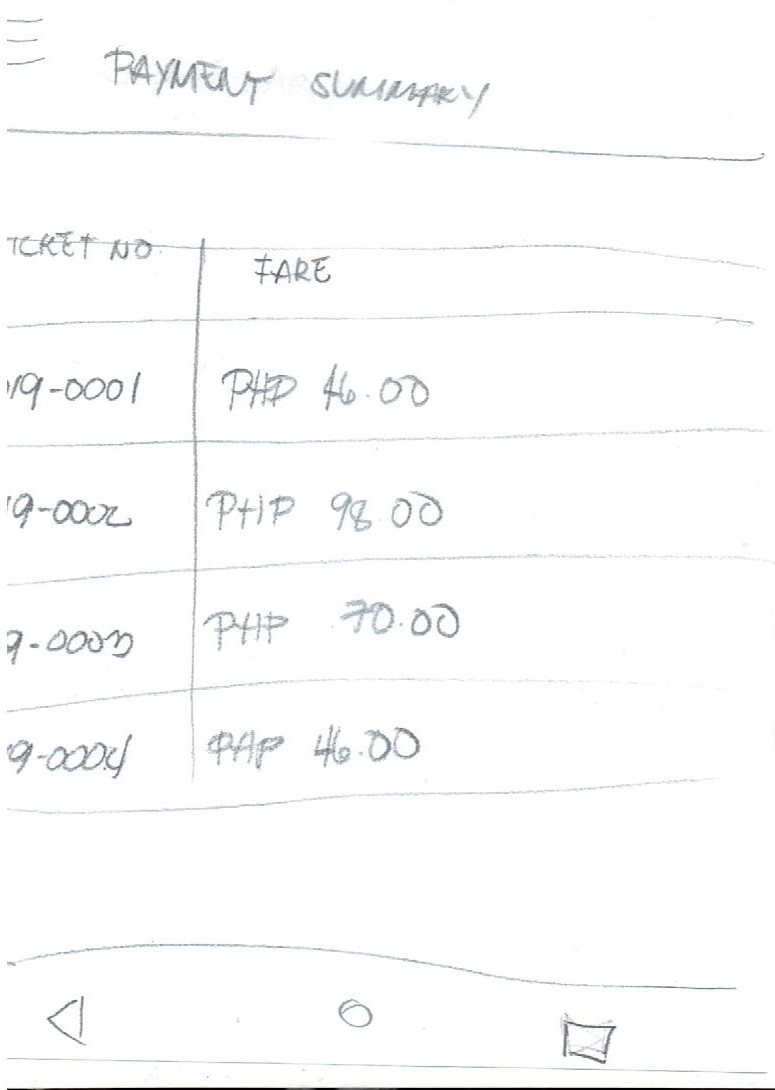 PAYMENT SUMMARY
TICKET NO.
FARE
19-0001 PHP 46.00
19-0002 PHP 98.00
9-0003 PHP 70.00
9-0004 PHP 46.00